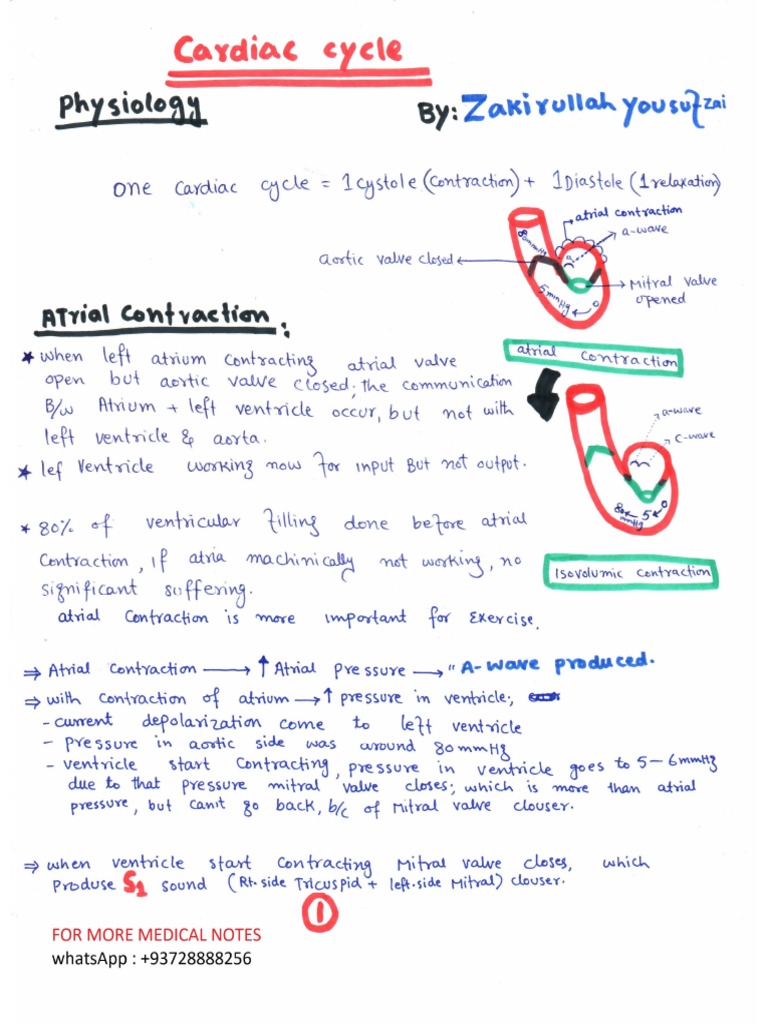 Cardiac cycle
Physiology
By: Zakirullah Yousufzai
One cardiac cycle = 1 cystole (contraction) + 1 Diastole (1 relaxation)
atrial contraction
a-wave
80mmHg
a
Aortic valve closed
Mitral valve
opened
5mmHg ← 0
ATrial Contraction:
atrial contraction
* when left atrium contracting atrial valve
open but aortic valve closed; the communication
B/w Atrium + left ventricle occur, but not with
left ventricle & aorta.
a-wave
c-wave
* lef Ventricle working now for input But not output.
80 ← 5 ← 0
mmHg
* 80% of ventricular filling done before atrial
Contraction, if atria machinically not working, no
significant suffering.
Isovolumic contraction
atrial Contraction is more important for Exercise.
⇒ Atrial Contraction → ↑ Atrial Pressure → " A-wave produced.
⇒ with contraction of atrium → ↑ pressure in ventricle;
- current depolarization come to left ventricle
- pressure in aortic side was around 80mmHg
- ventricle start Contracting, pressure in ventricle goes to 5-6mmHg
due to that pressure mitral valve closes; which is more than atrial
pressure, but can't go back, b/c of Mitral valve clouser.
⇒ when ventricle start Contracting Mitral valve closes, which
Produse S1 sound (Rt. side Tricuspid + left-side Mitral) clouser.
1
FOR MORE MEDICAL NOTES
whatsApp : +93728888256